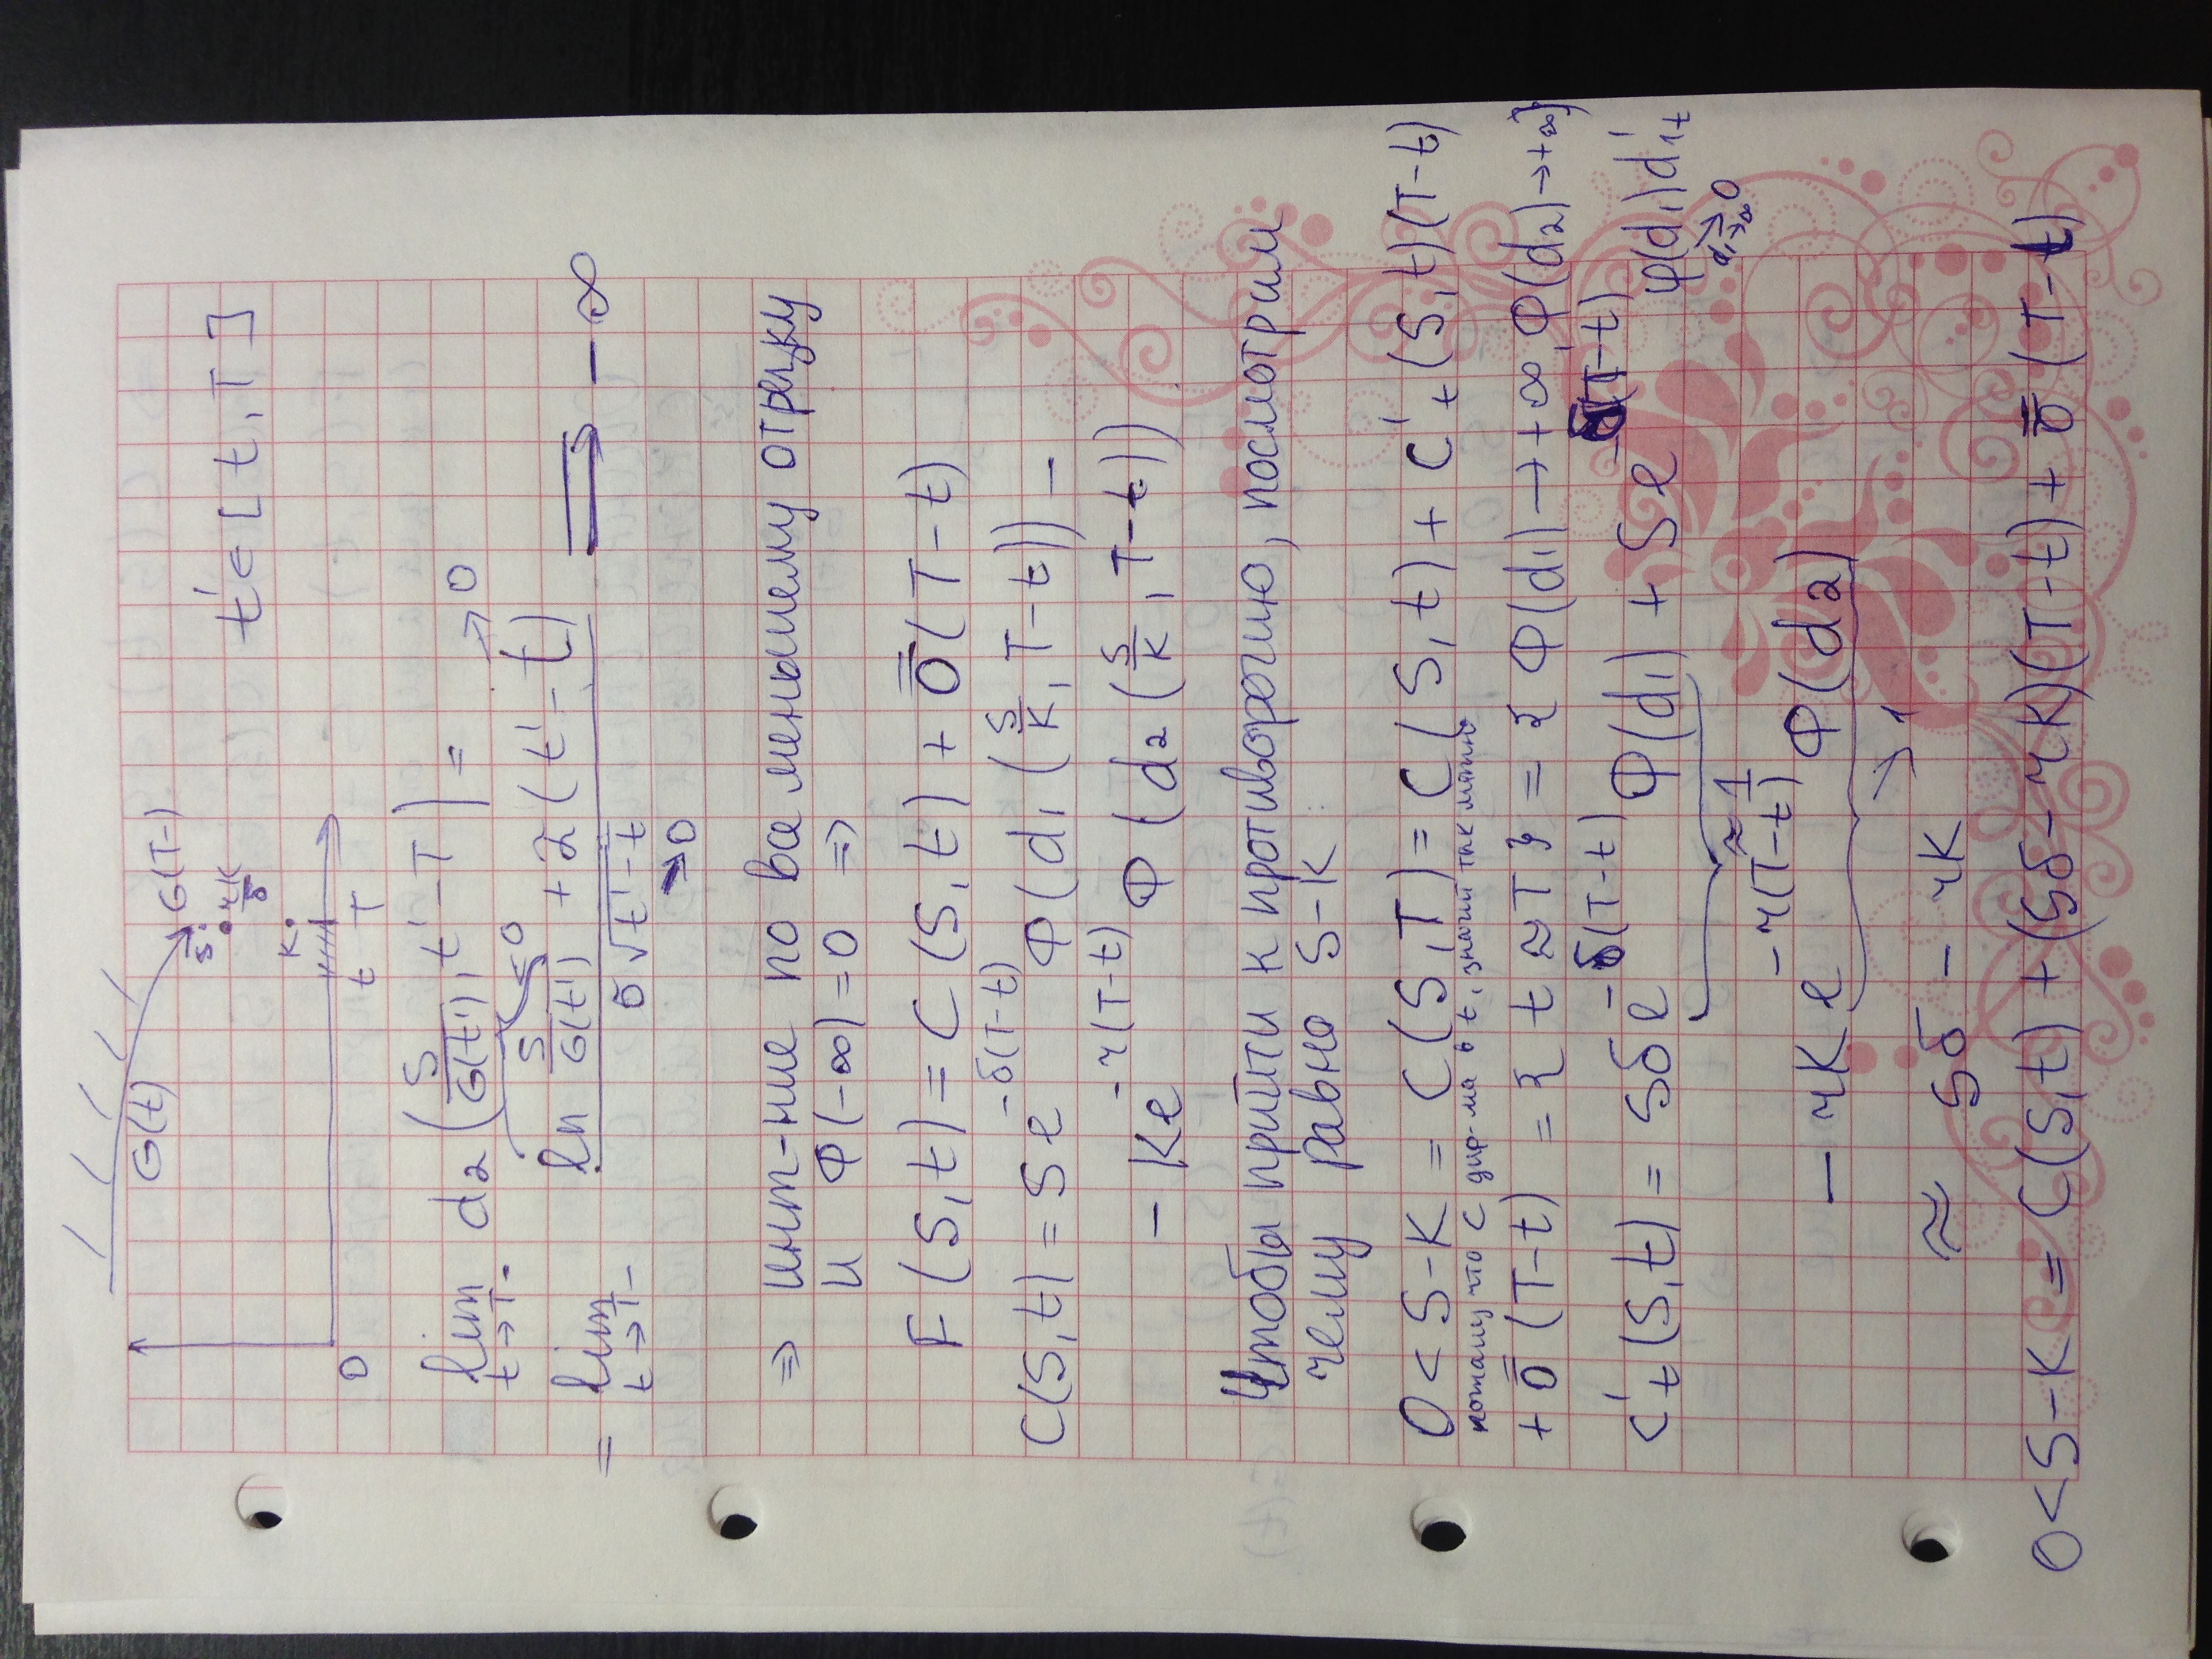 G(t) G(T-)
S̄ rK/δ
K
0 t T
t' ∈ [t, T]
lim t→T- d₂(S/G(t'), t'-T) =
= lim t→T- (ln S/G(t') + 2(t'-t)) / σ√(t'-t) = -∞
<0 →0
→0
⇒ инт-ние по все меньшему отрезку
и Φ(-∞)=0 ⇒
F(S,t) = C(S,t) + ō̄(T-t)
C(S,t) = Se^{-δ(T-t)} Φ(d₁(S/K, T-t)) -
- Ke^{-r(T-t)} Φ(d₂(S/K, T-t))
Чтобы прийти к противоречию, посмотрим
чему равно S-K
0<S-K = C(S,T) = C(S,t) + C'_t(S,t)(T-t)
потому что C диф-ма в t, значит так можно
+ ō̄(T-t) = {t≈T} = {Φ(d₁)→+∞, Φ(d₂)→+∞}
C'_t(S,t) = Sδe^{-δ(T-t)} Φ(d₁) + Se^{-δ(T-t)} φ(d₁)d'_{1t}
≈1 d₁→∞ →0
- rKe^{-r(T-t)} Φ(d₂)
→1
≈ Sδ - rK
0<S-K = C(S,t) + (Sδ-rK)(T-t) + ō̄(T-t)